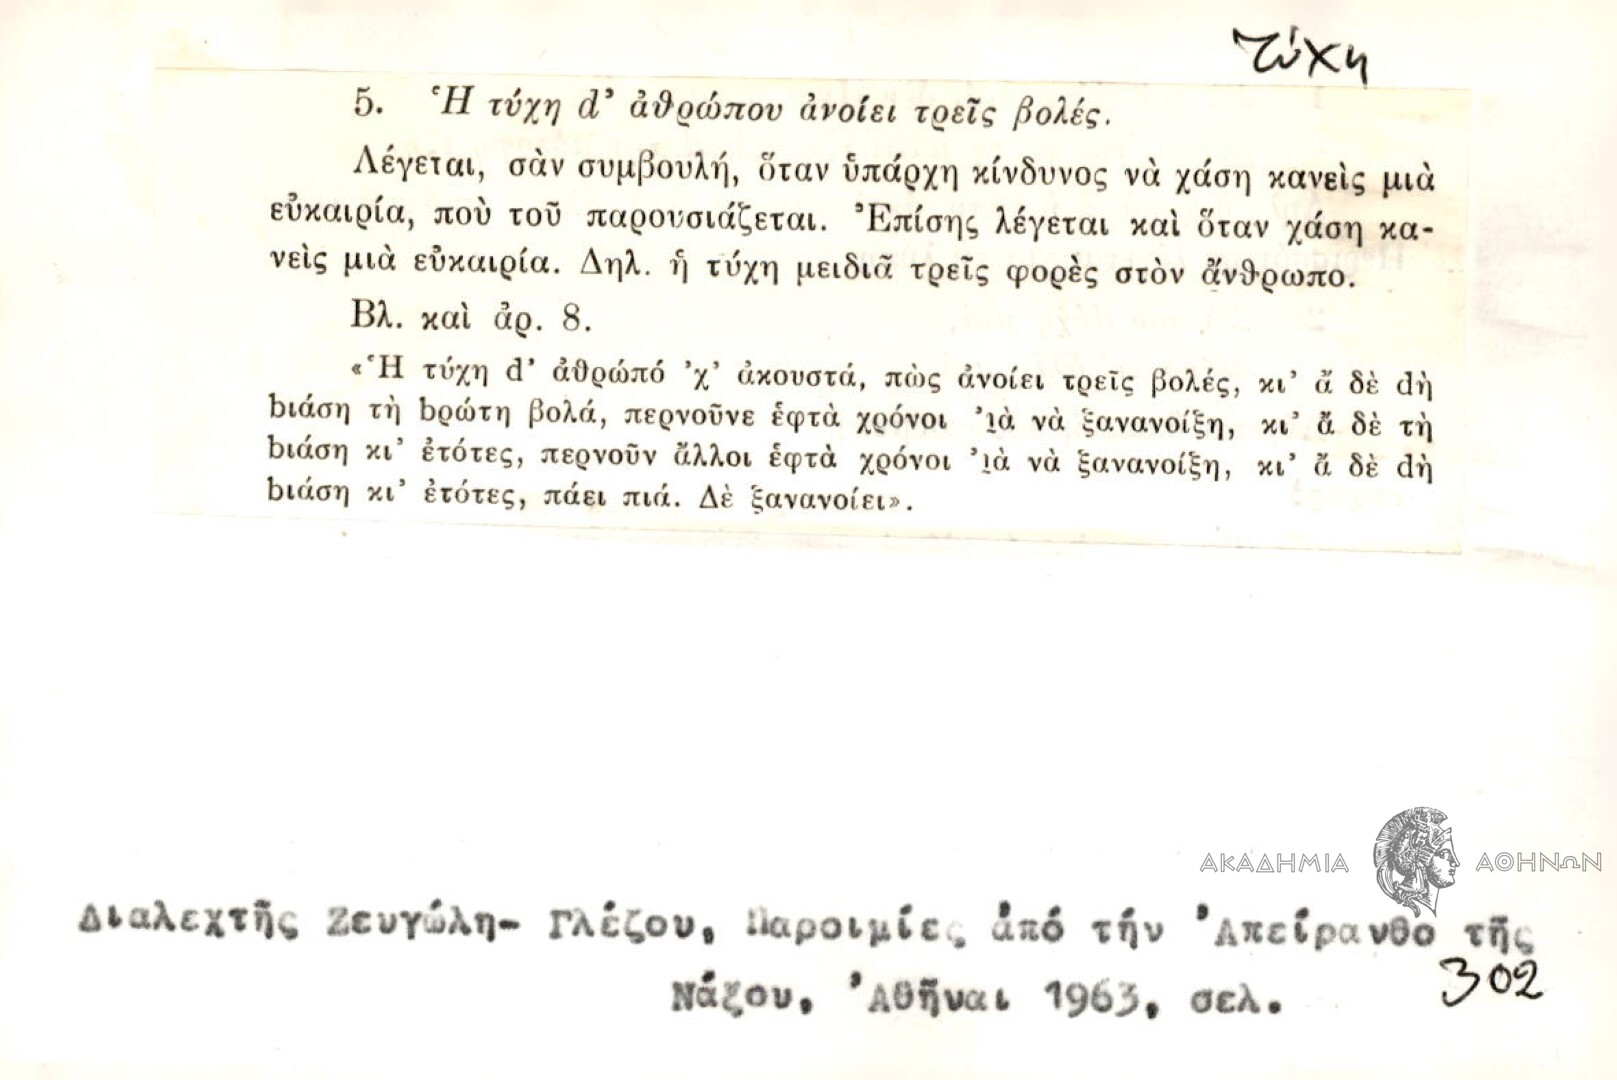 τύχη
5. Ἡ τύχη d’ ἀθρώπου ἀνοίει τρεῖς βολές.
Λέγεται, σὰν συμβουλή, ὅταν ὑπάρχη κίνδυνος νὰ χάση κανεὶς μιὰ
εὐκαιρία, ποὺ τοῦ παρουσιάζεται. Ἐπίσης λέγεται καὶ ὅταν χάση κα-
νεὶς μιὰ εὐκαιρία. Δηλ. ἡ τύχη μειδιᾶ τρεῖς φορὲς στὸν ἄνθρωπο.
Βλ. καὶ ἀρ. 8.
«Ἡ τύχη d’ ἀθρώπό ’χ’ ἀκουστά, πὼς ἀνοίει τρεῖς βολές, κι’ ἂ δὲ dὴ
bιάση τὴ bρώτη βολά, περνοῦνε ἑφτὰ χρόνοι ’ι̯ὰ νὰ ξανανοίξη, κι’ ἂ δὲ τὴ
bιάση κι’ ἐτότες, περνοῦν ἄλλοι ἑφτὰ χρόνοι ’ι̯ὰ νὰ ξανανοίξη, κι’ ἂ δὲ dὴ
bιάση κι’ ἐτότες, πάει πιά. Δὲ ξανανοίει».
ΑΚΑΔΗΜΙΑ ΑΘΗΝΩΝ
Διαλεχτῆς Ζευγώλη- Γλέζου, Παροιμίες ἀπό τήν Ἀπείρανθο τῆς
Νάξου, Ἀθῆναι 1963, σελ. 302